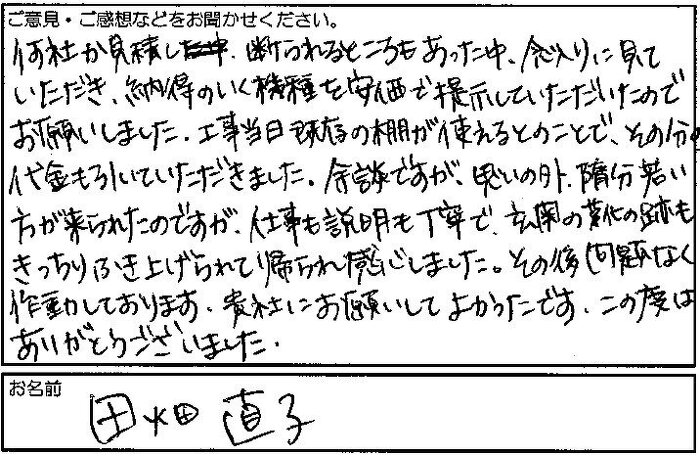 ご意見・ご感想などをお聞かせください。
何社か見積した中、断られるところもあった中、念入りに見て
いただき、納得のいく機種を安価で提示していただいたので
お願いしました。工事当日既存の棚が使えるとのことで、その分の
代金も引いていただきました。余談ですが、思いの外、随分若い
方が来られたのですが、仕事も説明も丁寧で、玄関の靴の跡も
きっちりふき上げられて帰られ感心しました。その後問題なく
作動しております。貴社にお願いしてよかったです。この度は
ありがとうございました。
お名前
田畑 直子